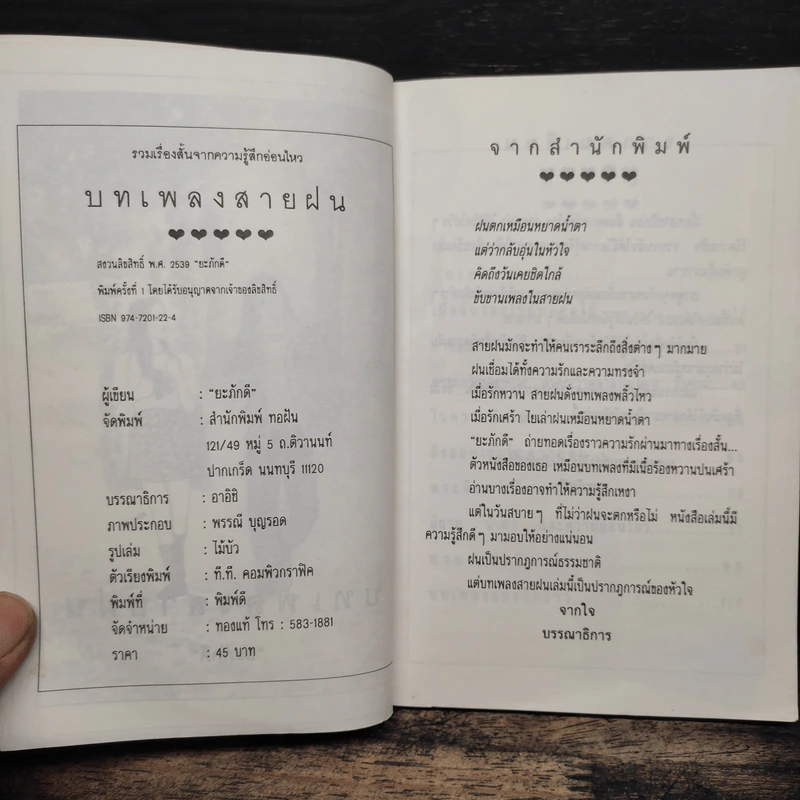 รวมเรื่องสั้นจากความรู้สึกอ่อนไหว
บทเพลงสายฝน
สงวนลิขสิทธิ์ พ.ศ. 2539 "ยะภักดี"
พิมพ์ครั้งที่ 1 โดยได้รับอนุญาตจากเจ้าของลิขสิทธิ์
ISBN 974-7201-22-4
ผู้เขียน : "ยะภักดี"
จัดพิมพ์ : สำนักพิมพ์ ทอฝัน
121/49 หมู่ 5 ถ.ติวานนท์
ปากเกร็ด นนทบุรี 11120
บรรณาธิการ : อาอิชิ
ภาพประกอบ : พรรณี บุญรอด
รูปเล่ม : ไม้บัว
ตัวเรียงพิมพ์ : ที.ที. คอมพิวกราฟิค
พิมพ์ที่ : พิมพ์ดี
จัดจำหน่าย : ทองแท้ โทร : 583-1881
ราคา : 45 บาท
จากสำนักพิมพ์
ฝนตกเหมือนหยาดน้ำตา
แต่ว่ากลับอุ่นในหัวใจ
คิดถึงวันเคยชิดใกล้
ขับขานเพลงในสายฝน
สายฝนมักจะทำให้คนเราระลึกถึงสิ่งต่างๆ มากมาย
ฝนเชื่อมได้ทั้งความรักและความทรงจำ
เมื่อรักหวาน สายฝนดั่งบทเพลงพลิ้วไหว
เมื่อรักเศร้า ไยเล่าฝนเหมือนหยาดน้ำตา
"ยะภักดี" ถ่ายทอดเรื่องราวความรักผ่านมาทางเรื่องสั้น...
ตัวหนังสือของเธอ เหมือนบทเพลงที่มีเนื้อร้องหวานปนเศร้า
อ่านบางเรื่องอาจทำให้ความรู้สึกเหงา
แต่ในวันสบายๆ ที่ไม่ว่าฝนจะตกหรือไม่ หนังสือเล่มนี้มี
ความรู้สึกดีๆ มามอบให้อย่างแน่นอน
ฝนเป็นปรากฏการณ์ธรรมชาติ
แต่บทเพลงสายฝนเล่มนี้เป็นปรากฏการณ์ของหัวใจ
จากใจ
บรรณาธิการ